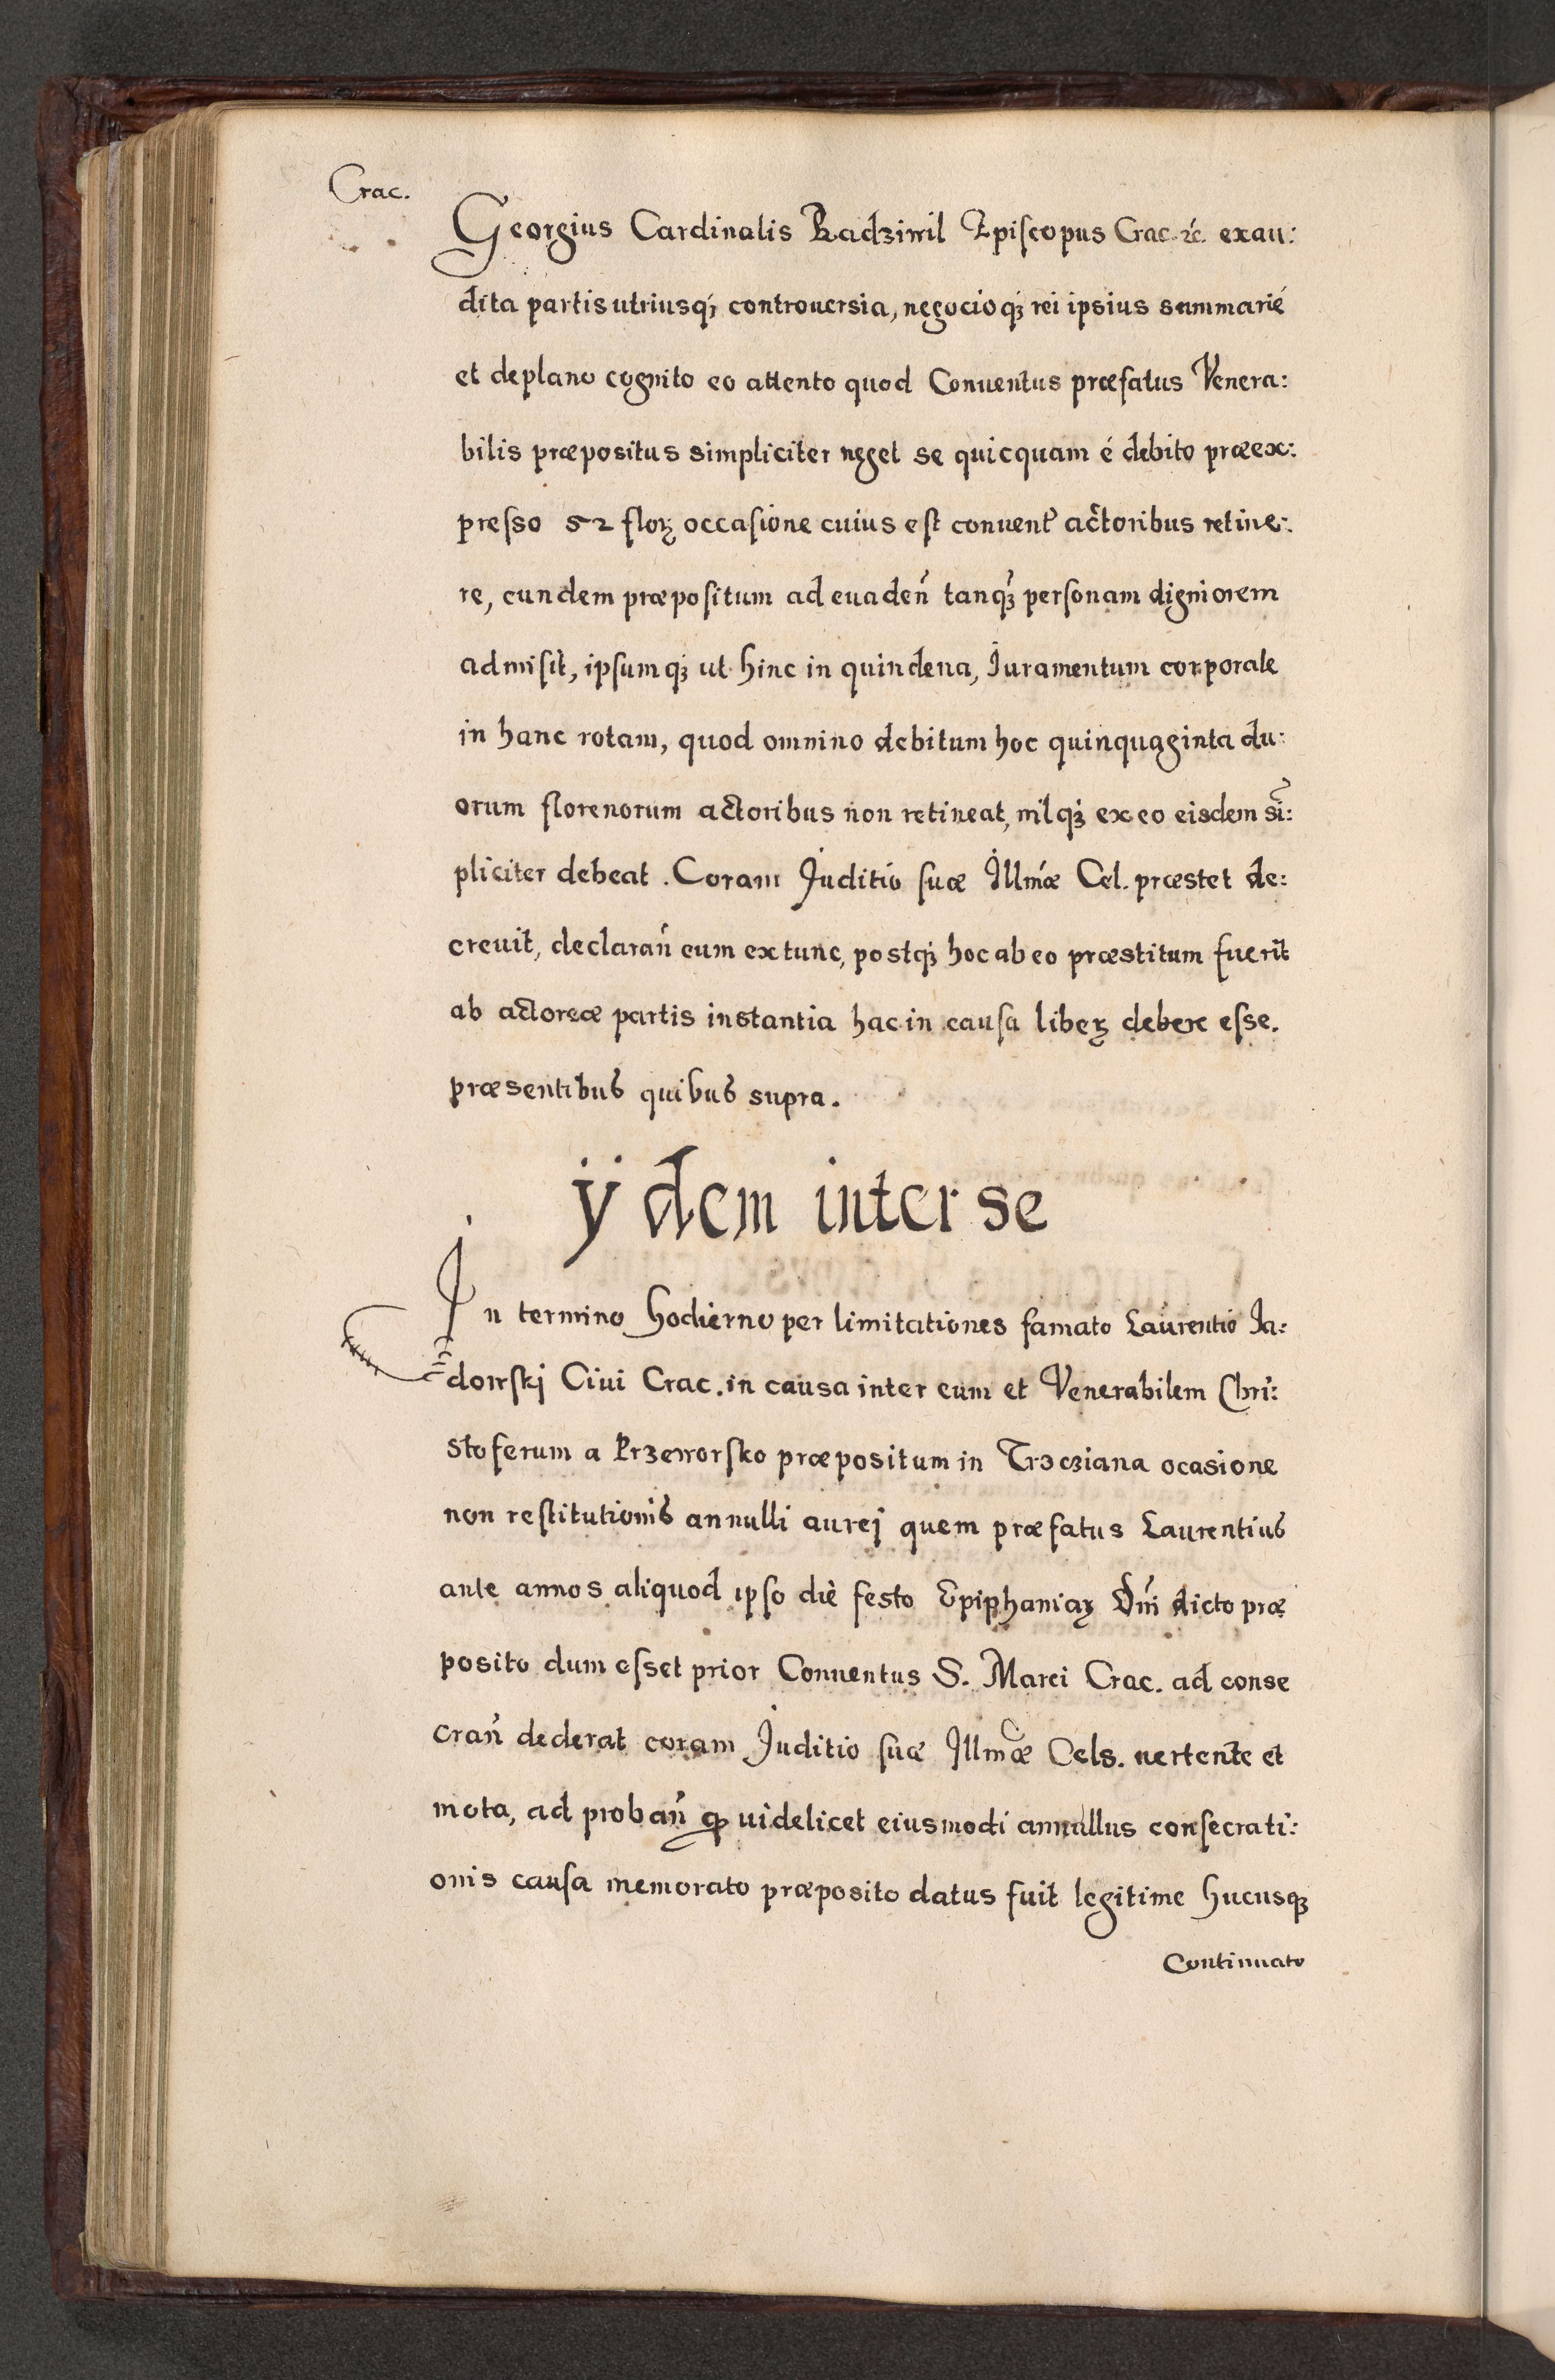 Crac.
Georgius Cardinalis Radziwil Episcopus Crac. &c. exau:
dita partis utriusq; controuersia, negocioq; rei ipsius summarié
et deplano cognito eo attento quod Conuentus præfatus Venera:
bilis præpositus simpliciter neget se quicquam é debito præex:
presso 52 floꝝ occasione cuius est conuent' actoribus retine:
re, eundem præpositum ad euadeñ tanq; personam digniorem
admisit, ipsumq; ut hinc in quindena, Iuramentum corporale
in hanc rotam, quod omnino debitum hoc quinquaginta du:
orum florenorum actoribus non retineat, nilq; ex eo eisdem sĩ:
pliciter debeat. Coram Juditio suæ Illmæ Cel. præstet de:
creuit, declarañ eum extunc, postq; hoc ab eo præstitum fuerit
ab actoreæ partis instantia hac in causa libeꝝ debere esse.
præsentibus quibus supra.
ÿdem inter se
In termino hodierno per limitationes famato Laurentio Ja:
dowskj Ciui Crac. in causa inter eum et Venerabilem Chri:
stoferum a Przeworsko præpositum in Trzcziana ocasione
non restitutionis annulli aurej quem præfatus Laurentius
ante annos aliquod ipso die festo Epiphaniaꝝ Dñi dicto præ
posito dum esset prior Conuentus S. Marci Crac. ad conse
crañ dederat coram Juditio suæ Illmæ Cels. uertente et
mota, ad probañ ꝙ uidelicet eiusmodi annullus consecrati:
onis causa memorato præposito datus fuit legitime hucusq;
Continuato